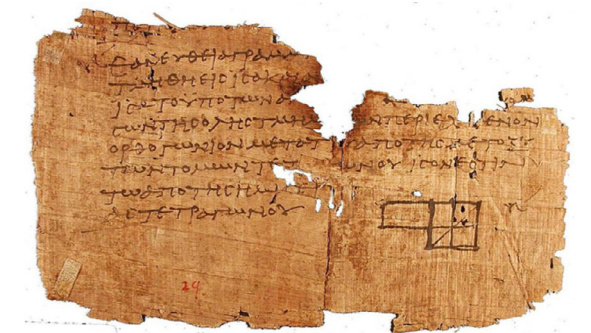 ΕΑΝ ΕΥΘΕΙΑ ΓΡΑΜ
ΤΜΗΘΗ ΕΙϹ ΙϹΑ ΚΑΙ Α
ΙϹΑ ΤΟ ΥΠΟ ΤΩΝ ΑΝ
ϹΩΝ ΤΗϹ ΟΛΗϹ ΤΜΗ Ν ΠΕΡΙΕΧΟΜΕΝΟΝ
ΟΡΘΟΓΩΝΙΟΝ ΜΕΤΑ ΤΟΥ ΑΠΟ ΤΗϹ ΜΕΤΟΞΥ
ΤΩΝ ΤΟΜΩΝ ΤΕΤ ΩΝΟΥ ΙϹΟΝ ΕϹΤΙΝ
ΤΩ ΑΠΟ ΤΗϹ ΗΜΙϹ
ΑϹ ΤΕΤΡΑΓΩΝΟΥ
29